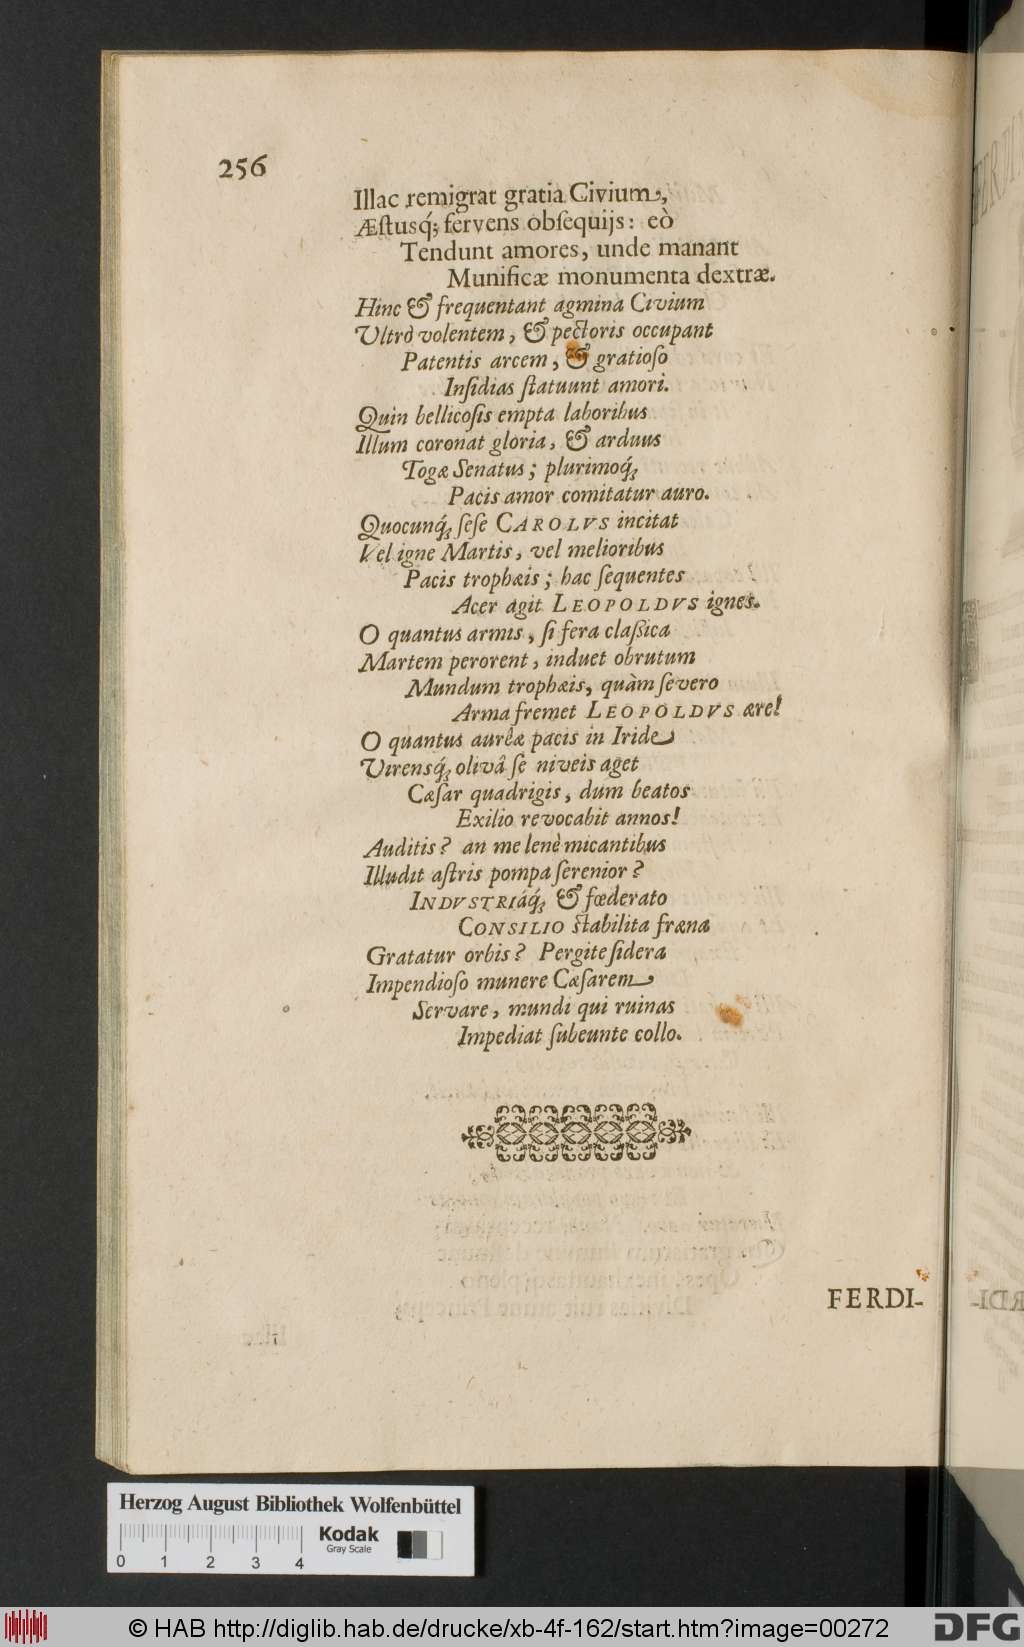 256
Illac remigrat gratia Civium,
Æstusq́; fervens obsequijs: eò
Tendunt amores, unde manant
Munificæ monumenta dextræ.
Hinc & frequentant agmina Civium
Vltrò volentem, & pectoris occupant
Patentis arcem, & gratioso
Insidias statuunt amori.
Quin bellicosis empta laboribus
Illum coronat gloria, & arduus
Togæ Senatus; plurimoq́;
Pacis amor comitatur auro.
Quocunq́; sese CAROLVS incitat
Vel igne Martis, vel melioribus
Pacis trophæis; hac sequentes
Acer agit LEOPOLDVS ignes.
O quantus armis, si fera classica
Martem perorent, induet obrutum
Mundum trophæis, quàm severo
Arma fremet LEOPOLDVS ære!
O quantus aureâ pacis in Iride
Virensq́; olivâ se niveis aget
Cæsar quadrigis, dum beatos
Exilio revocabit annos!
Auditis? an me lenè micantibus
Illudit astris pompa serenior?
INDVSTRIáq́; & fœderato
CONSILIO stabilita fræna
Gratatur orbis? Pergite sidera
Impendioso munere Cæsarem
Servare, mundi qui ruinas
Impediat subeunte collo.
FERDI-
Herzog August Bibliothek Wolfenbüttel
0 1 2 3 4
Kodak
Gray Scale
© HAB http://diglib.hab.de/drucke/xb-4f-162/start.htm?image=00272
DFG